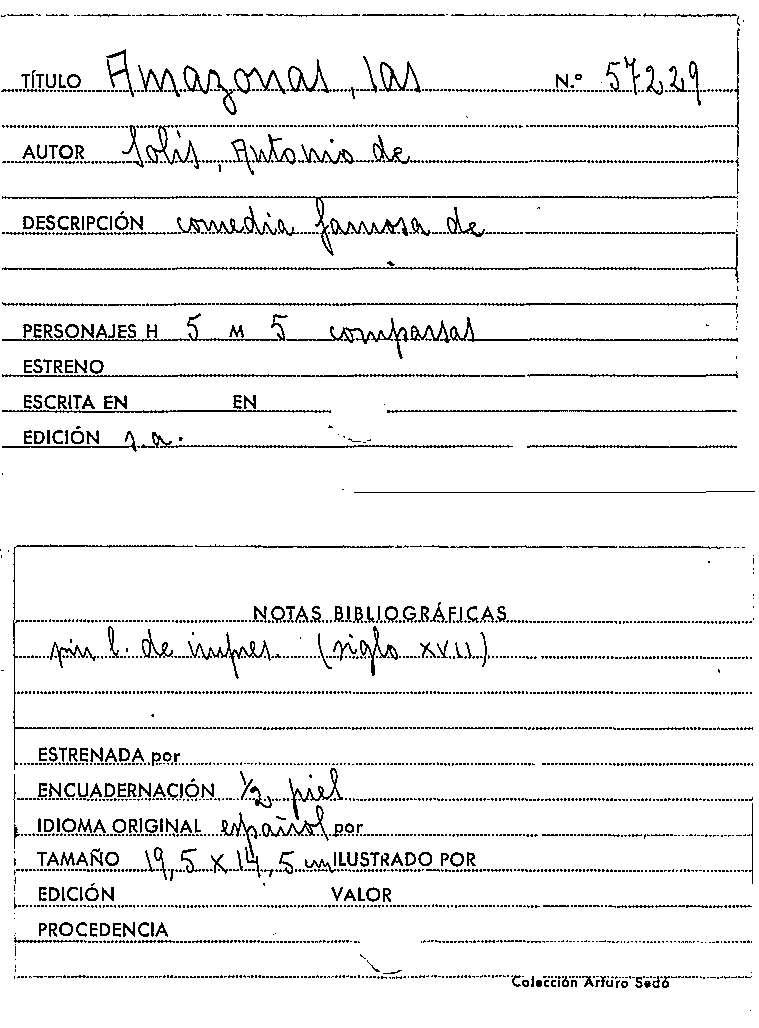 TÍTULO Amazonas, las N.º 57229
AUTOR Solís, Antonio de
DESCRIPCIÓN comedia famosa de
PERSONAJES H 5 M 5 comparsas
ESTRENO
ESCRITA EN EN
EDICIÓN s.a.
NOTAS BIBLIOGRÁFICAS
sin l. de impres. (siglo XVII)
ESTRENADA por
ENCUADERNACIÓN 1/2 piel
IDIOMA ORIGINAL español por
TAMAÑO 19,5 x 14,5 cm ILUSTRADO POR
EDICIÓN VALOR
PROCEDENCIA
Colección Arturo Sedó